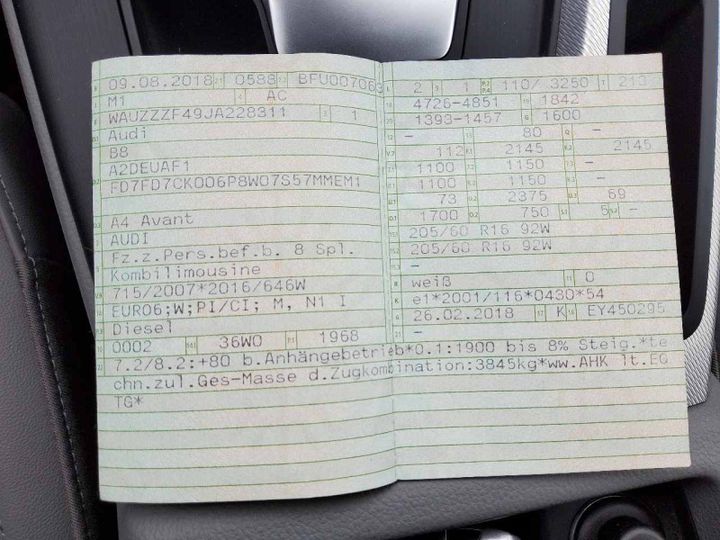 09.08.2018 0588 BFU00706
M1 AC
WAUZZZF49JA228311 1
Audi
B8
A2DEUAF1
FD7FD7CK006P8W07S57MMEM1
A4 Avant
AUDI
Fz.z.Pers.bef.b. 8 Spl.
Kombilimousine
715/2007*2016/646W
EURO6;W;PI/CI; M, N1 I
Diesel
0002 36W0 1968
7.2/8.2:+80 b.Anhängebetrieb*0.1:1900 bis 8% Steig.*te
chn.zul.Ges-Masse d.Zugkombination:3845kg*ww.AHK lt.EG
TG*
2 1 110/ 3250 213
4726-4851 1842
1393-1457 1600
- 80 -
112 2145 2145
1100 1150 -
1100 1150 -
73 2375 69
1700 750 5 -
205/60 R16 92W
205/60 R16 92W
-
weiß 0
e1*2001/116*0430*54
26.02.2018 K EY450295
-